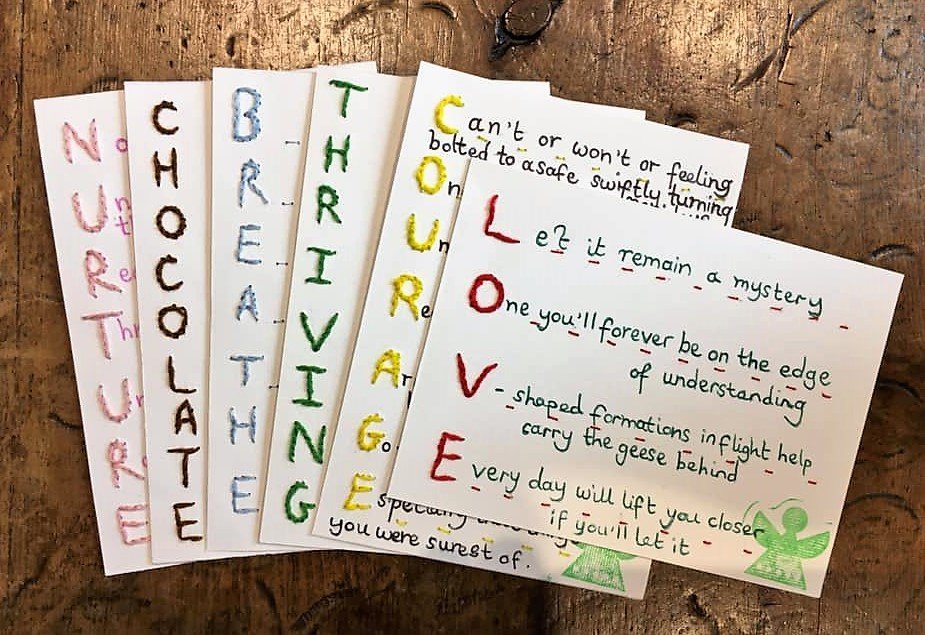 NURTURE
CHOCOLATE
BREATHE
THRIVING
COURAGE
Can't or won't or feeling
bolted to a safe swiftly turning
you were surest of.
Let it remain a mystery
One you'll forever be on the edge
of understanding
V-shaped formations in flight help
carry the geese behind
Every day will lift you closer
if you'll let it